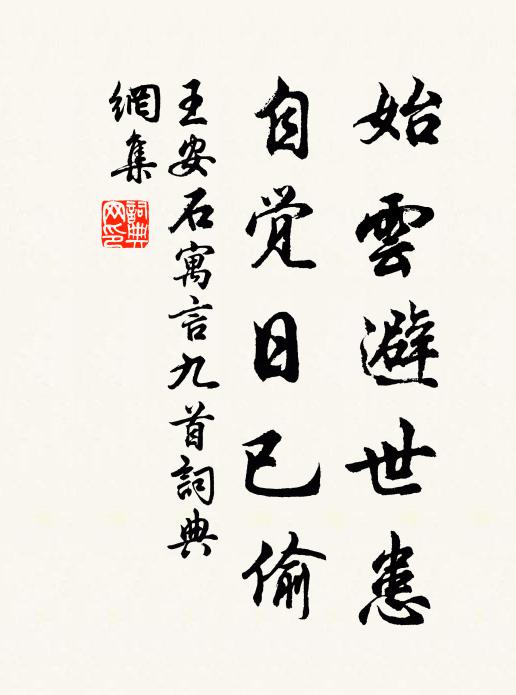 始雲避世患
自覚日已偷
王安石寓言九首詞典
網集
詞典
网印